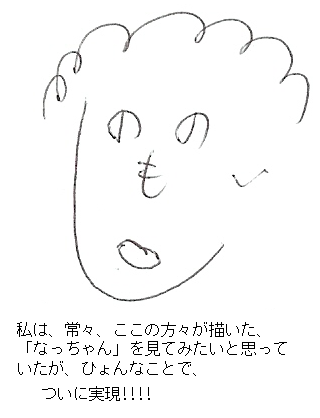 の の
も
私は、常々、ここの方々が描いた、
「なっちゃん」を見てみたいと思って
いたが、ひょんなことで、
ついに実現!!!!